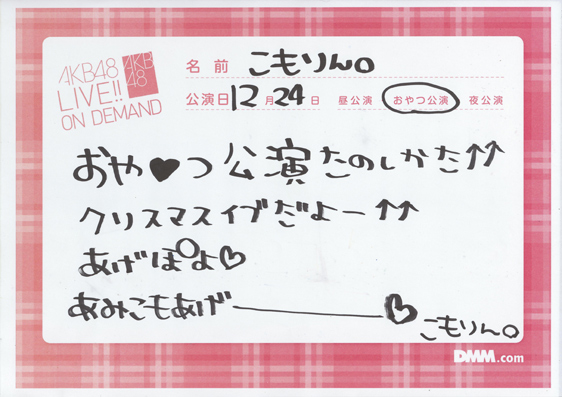 AKB48
LIVE!!
ON DEMAND
AKB
48
名前 こもりん。
公演日 12月24日 昼公演 おやつ公演 夜公演
おや♥つ公演たのしかた↑↑
クリスマスイブだよー↑↑
あげぽよ♡
あみこもあげ――――♡
こもりん。
DMM.com